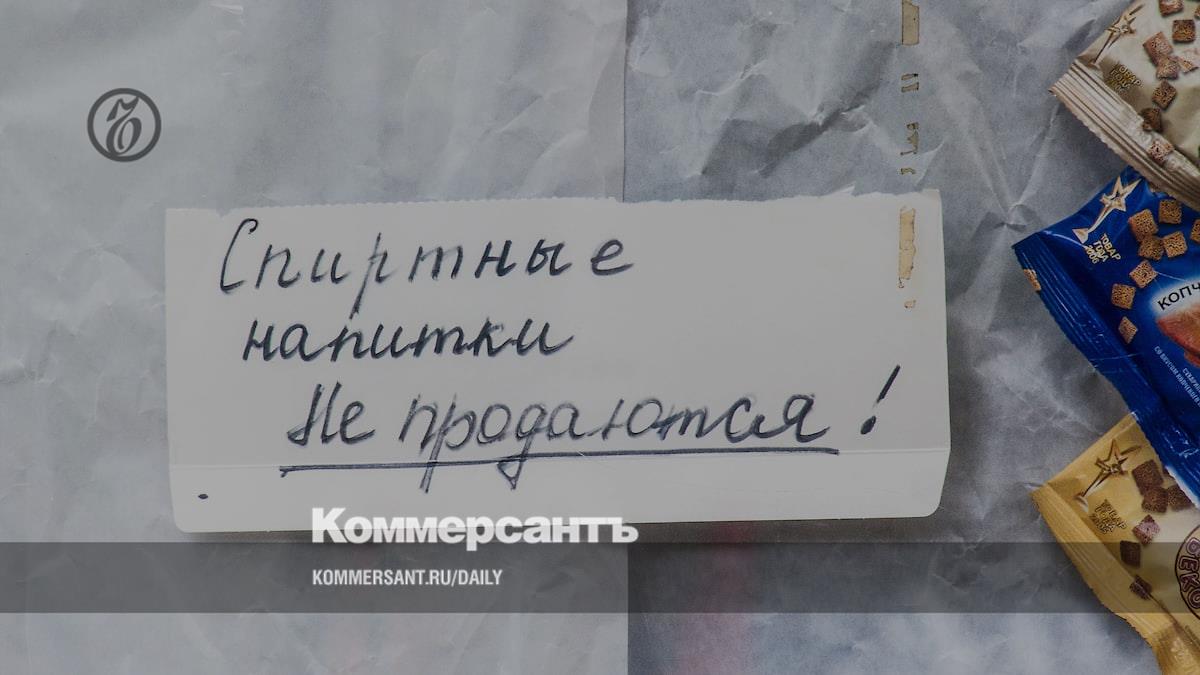 Спиртные
напитки
Не продаются!
Коммерсантъ
KOMMERSANT.RU/DAILY
ТОВАР
ГОДА
КОПЧ